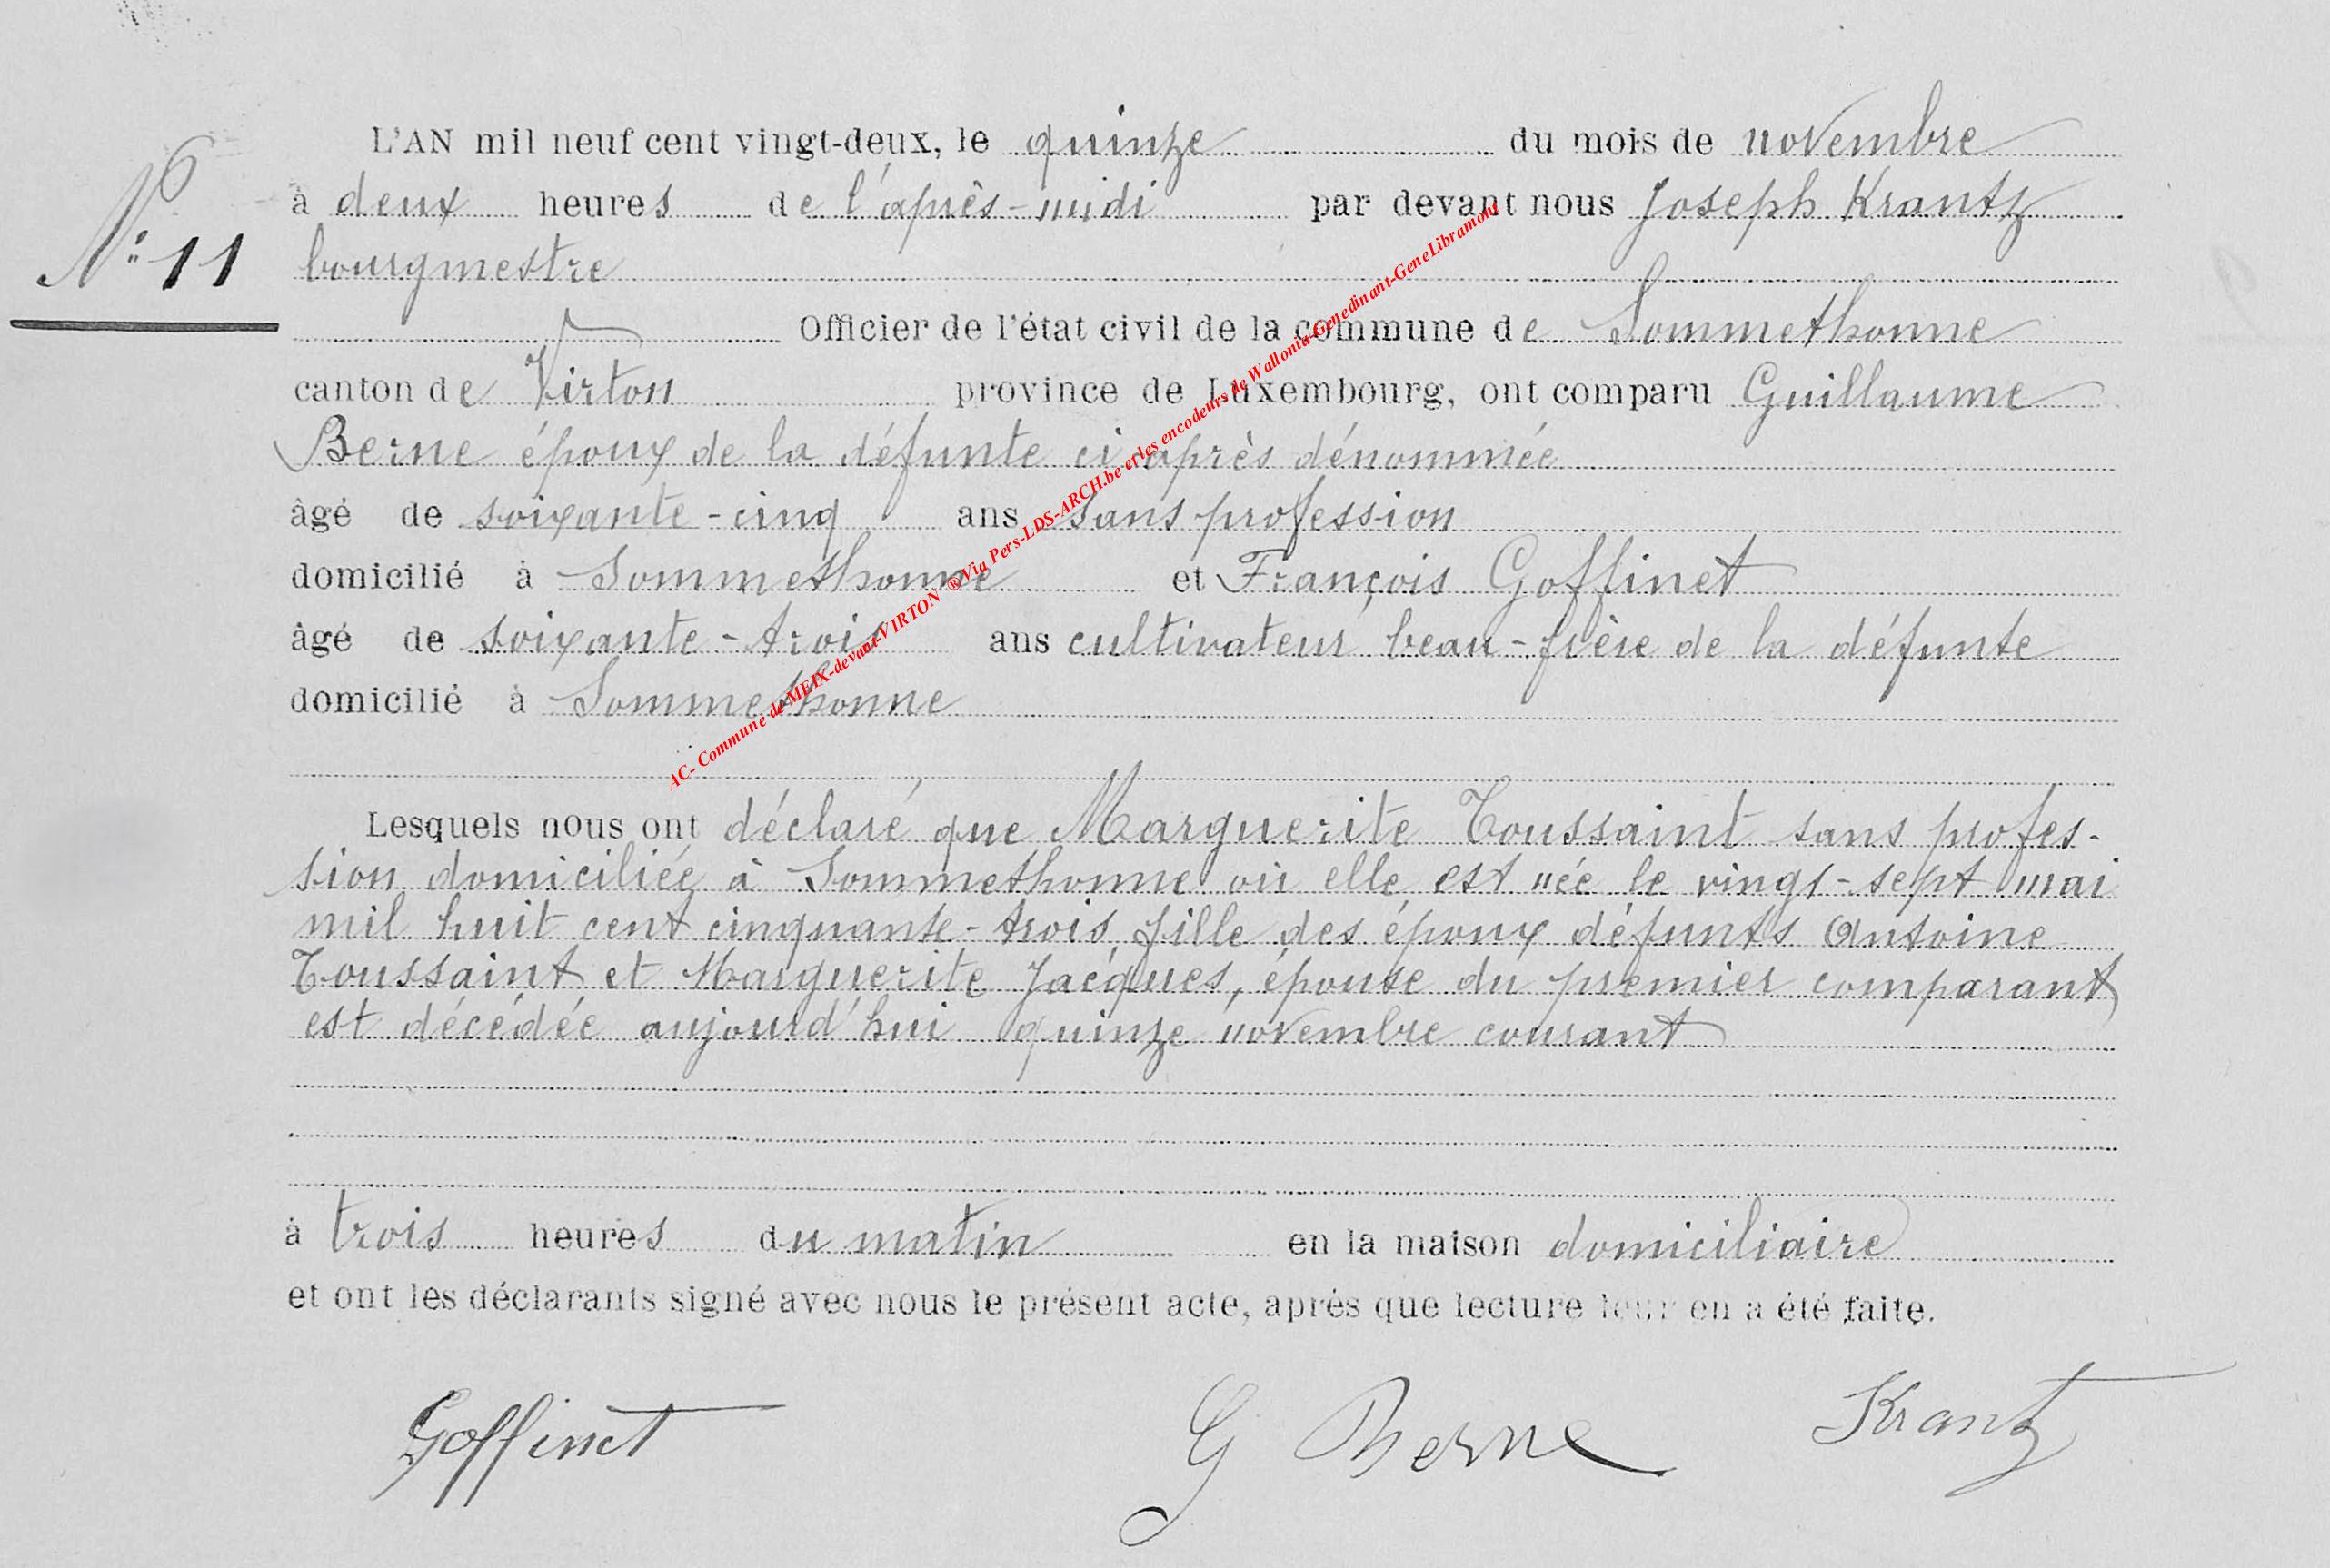 L'AN mil neuf cent vingt-deux, le quinze du mois de novembre
à deux heures de l'après-midi par devant nous Joseph Krantz
N° 11 bourgmestre
Officier de l'état civil de la commune de Sommethonne
canton de Virton province de Luxembourg, ont comparu Guillaume
Berne époux de la défunte ci après dénommée
âgé de soixante-cinq ans sans profession
domicilié à Sommethonne et François Goffinet
âgé de soixante-trois ans cultivateur beau-frère de la défunte
domicilié à Sommethonne
AC- Commune de MEIX-devant-VIRTON ® Via Pers-LDS-ARCH.be et les encodeurs de Wallonia-Genedinant-GeneLibramont
Lesquels nous ont déclaré que Marguerite Toussaint sans profes-
sion domiciliée à Sommethonne où elle est née le vingt-sept mai
mil huit cent cinquante-trois, fille des époux défunts Antoine
Toussaint et Marguerite Jacques, épouse du premier comparant
est décédée aujourd'hui quinze novembre courant
à trois heures du matin en la maison domiciliaire
et ont les déclarants signé avec nous le présent acte, après que lecture leur en a été faite.
Goffinet G Berne Krantz